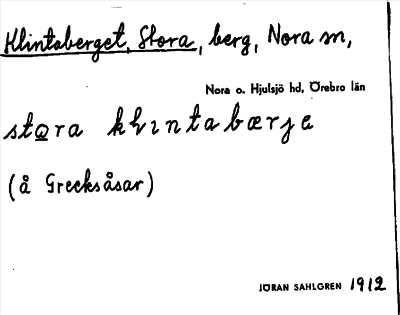 Klintaberget, Stora, berg, Nora sn,
Nora o. Hjulsjö hd, Örebro län
stọra klıntabærje
(å Greeksåsar)
JÖRAN SAHLGREN 1912